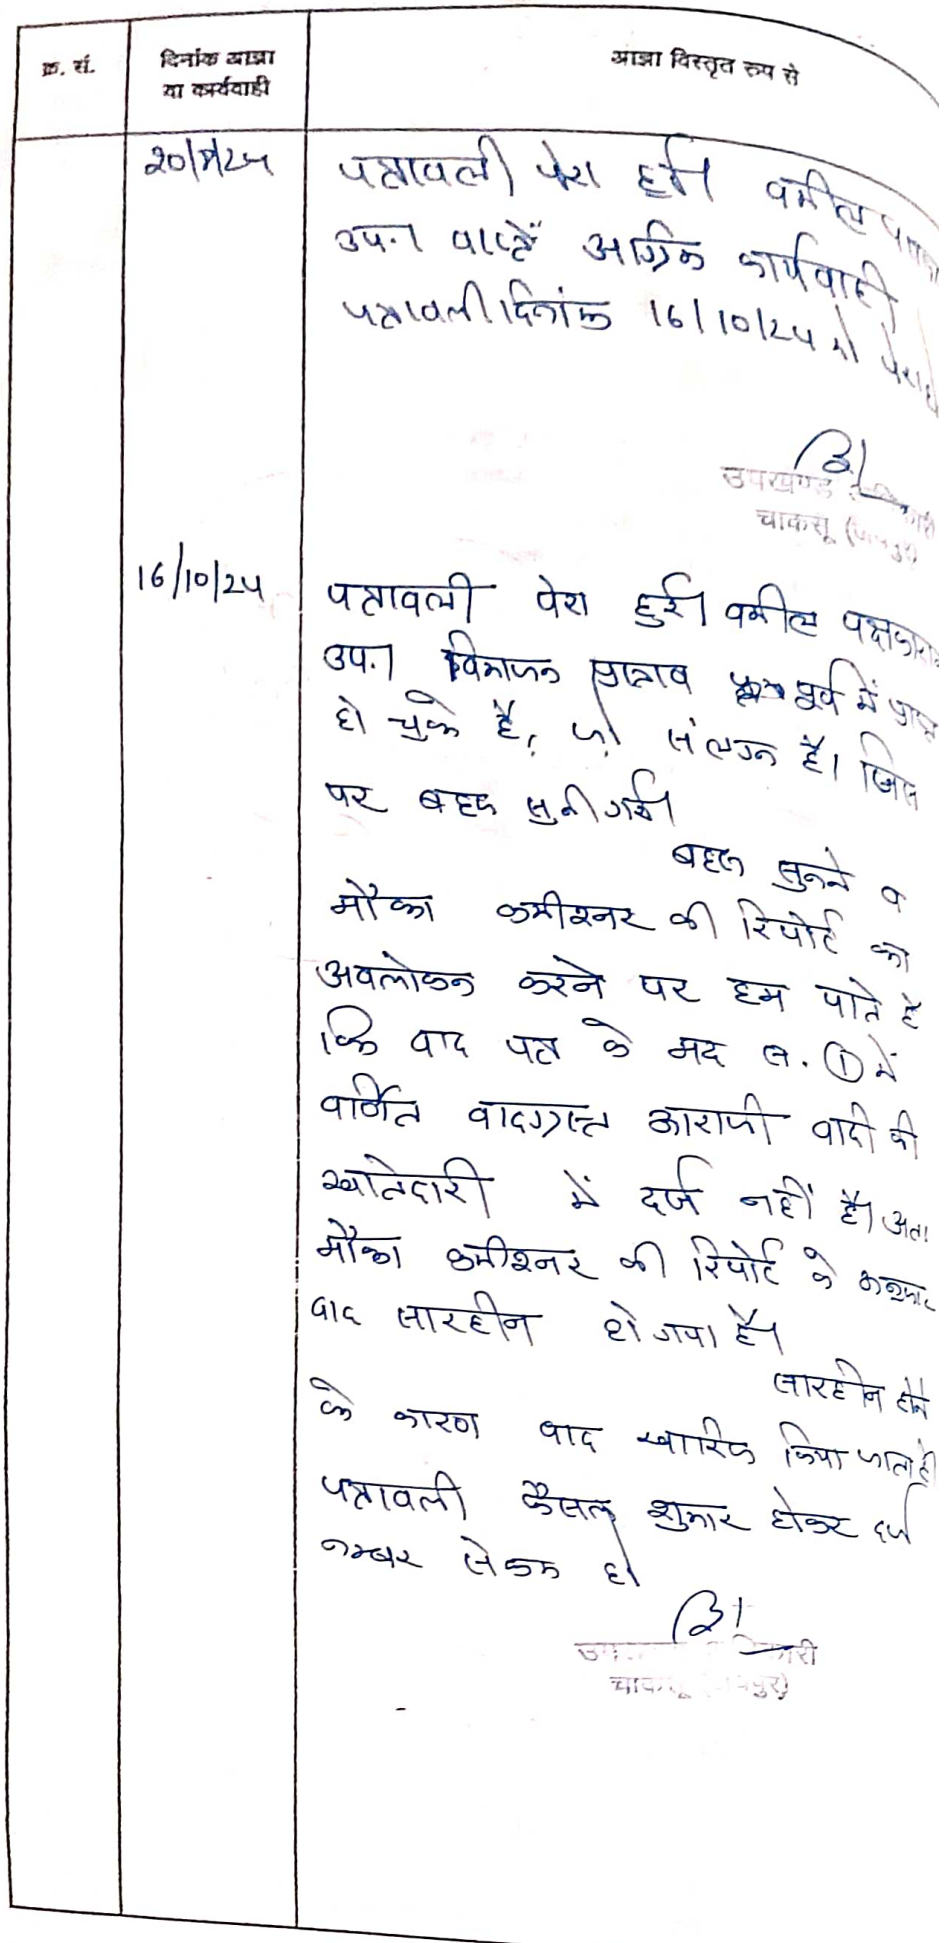 क्र. सं.
दिनांक आज्ञा
या कार्यवाही
आज्ञा विस्तृत रूप से
पत्रावली पेश हुई। वकील
उप.। वास्ते अग्रिम कार्यवाही
पत्रावली दिनांक 16/10/24 को पेश
उपखण्ड
चाकसू
16/10/24
पत्रावली पेश हुई। वकील पक्षकारान
उप.। विभाजन प्रस्ताव पूर्व में प्राप्त
हो चुके है, जो संलग्न है। जिस
पर बहस सुनी गई।
बहस सुनने व
मौका कमीश्नर की रिपोर्ट का
अवलोकन करने पर हम पाते है
कि वाद पत्र के मद स. ① में
वर्णित वादग्रस्त आराजी वादी की
खातेदारी में दर्ज नहीं है। अतः
मौका कमीश्नर की रिपोर्ट के अनुसार
वाद सारहीन हो गया है।
सारहीन होने
के कारण वाद खारिज किया जाता है
पत्रावली फैसल शुमार होकर दर्ज
नम्बर से कम हो
चाकसू